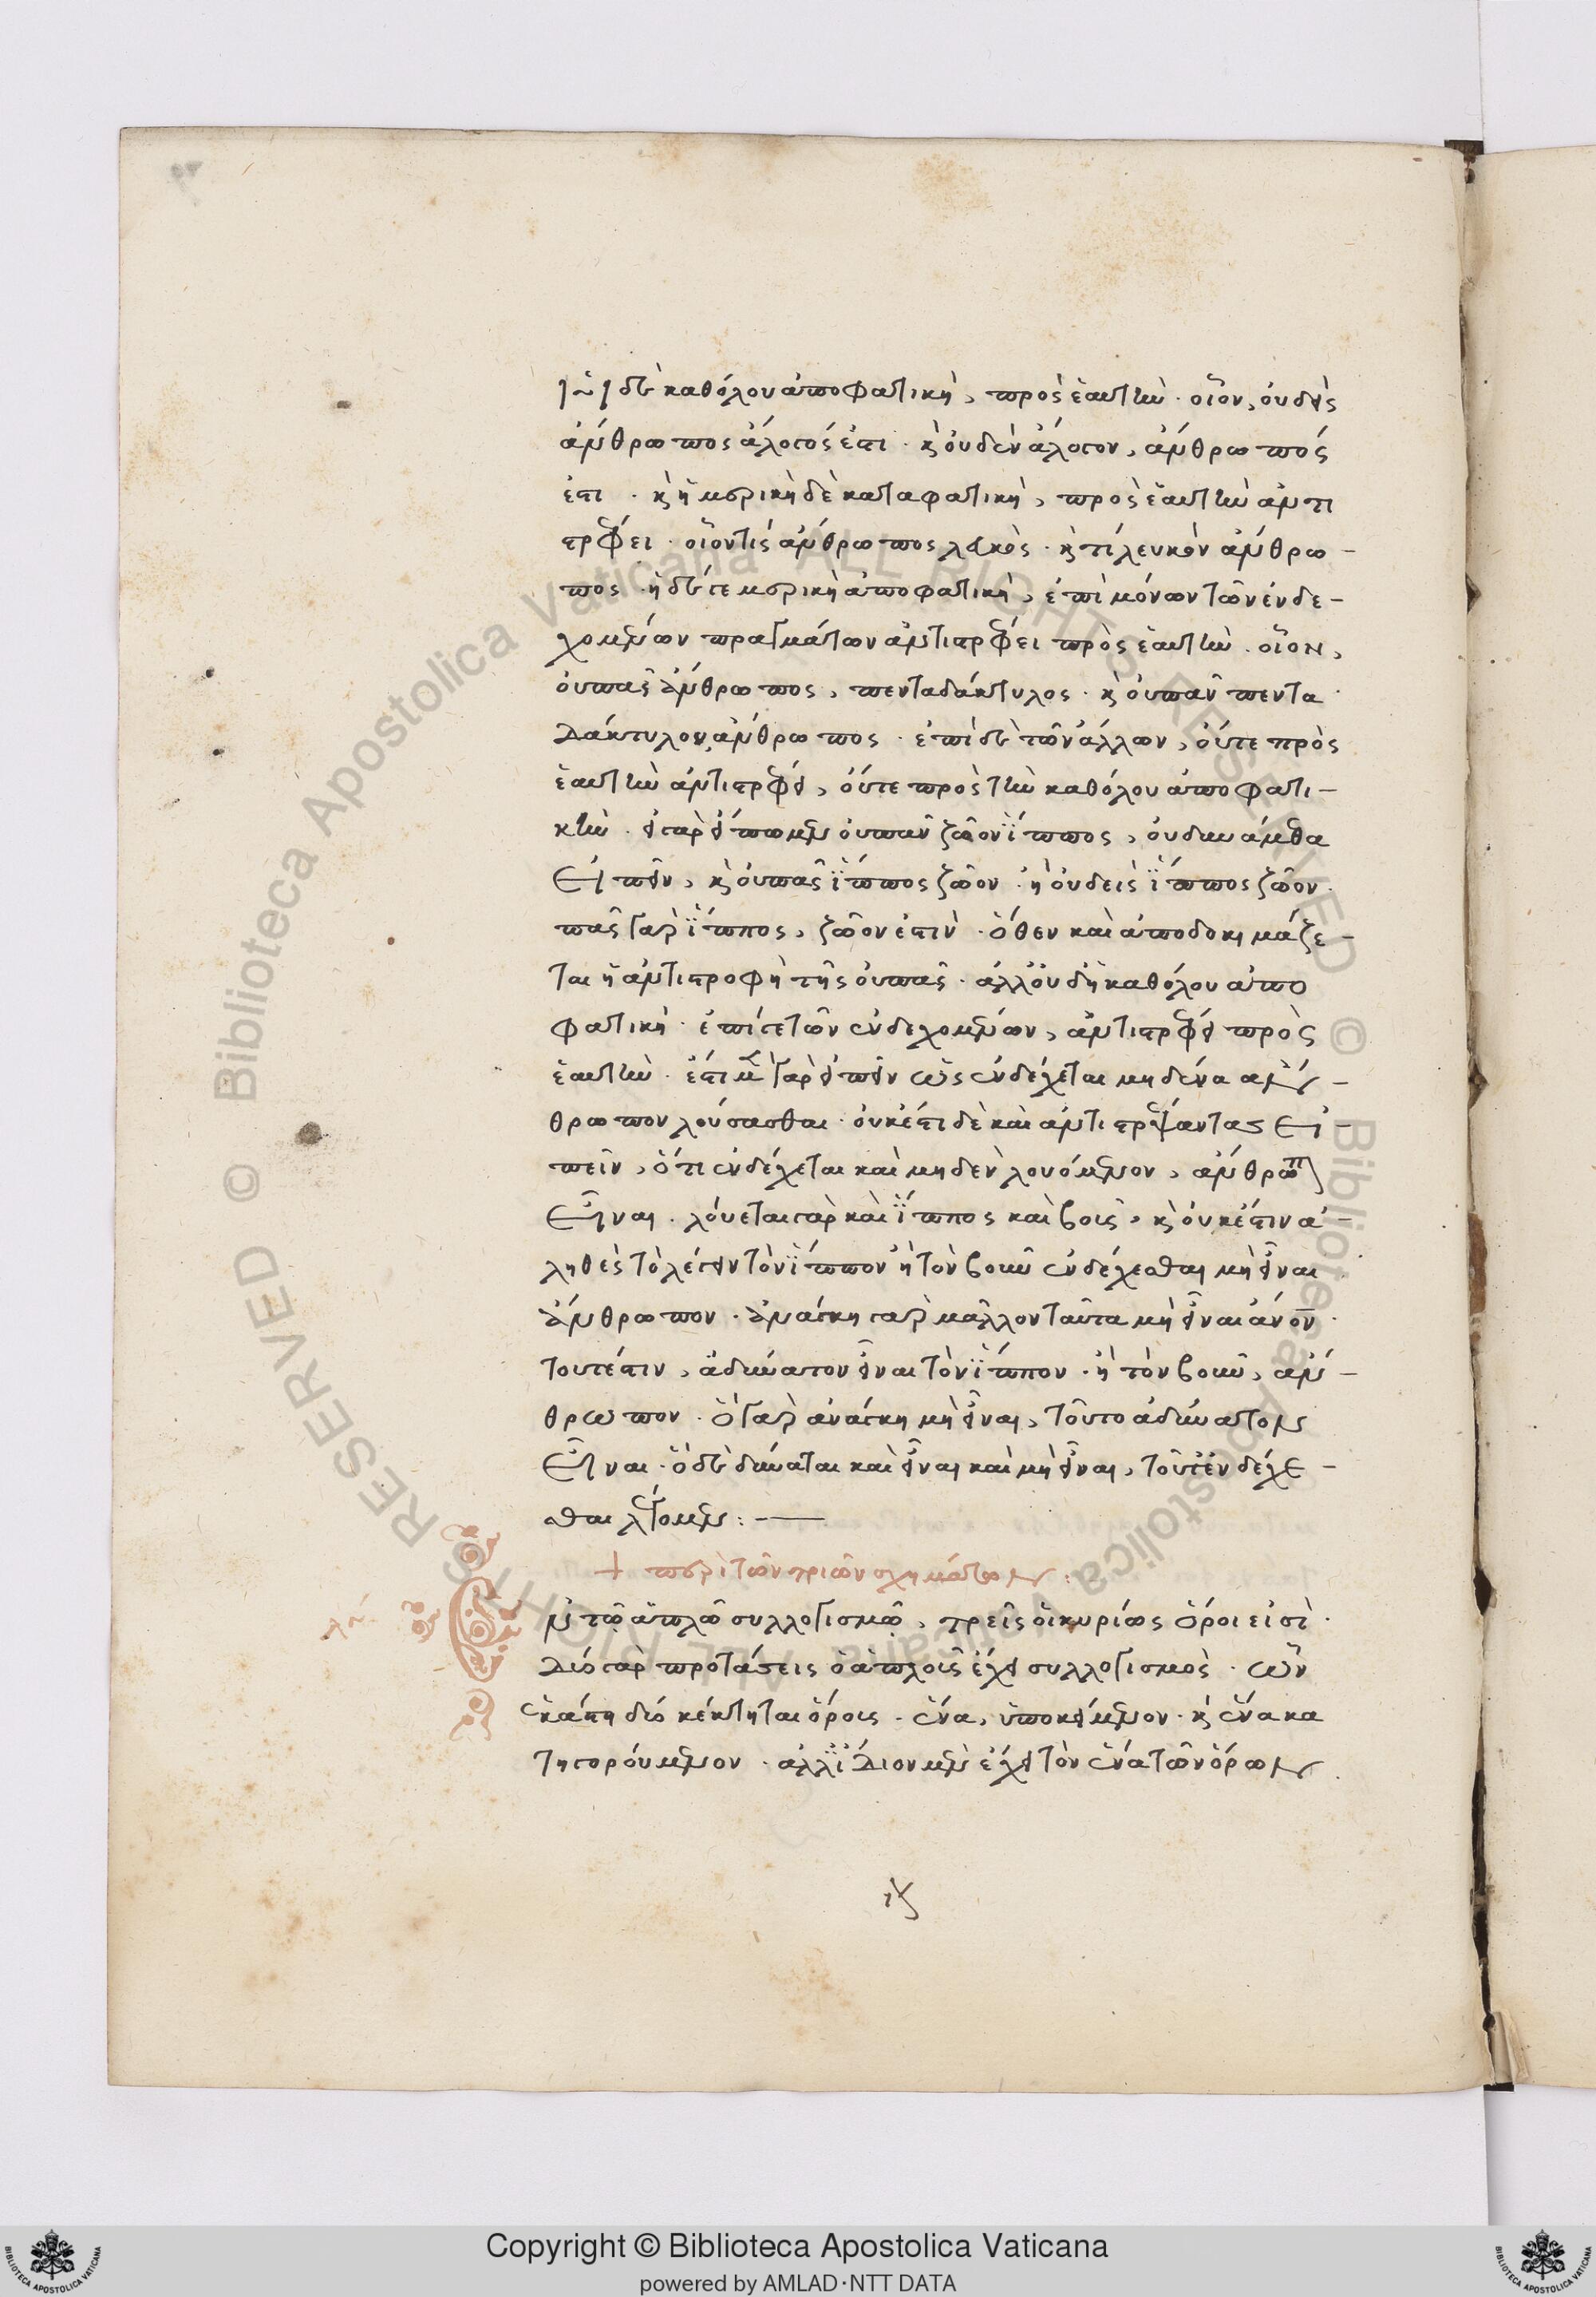 ἡ δὲ καθόλου ἀποφατικὴ, πρὸς ἑαυτήν. οἷον, οὐδεὶς
ἄνθρωπος ἄλογός ἐστι. καὶ οὐδὲν ἄλογον, ἄνθρωπός
ἐστι. καὶ ἡ μερικὴ δὲ καταφατικὴ, πρὸς ἑαυτὴν ἀντι
στρέφει. οἷον τίς ἄνθρωπος λευκὸς. καὶ τί λευκὸν ἄνθρω-
πος. ἡ δέ γε μερικὴ ἀποφατικὴ, ἐπὶ μόνων τῶν ἐνδε-
χομένων πραγμάτων ἀντιστρέφει πρὸς ἑαυτήν. οἷον,
οὐ πᾶς ἄνθρωπος, πενταδάκτυλος. καὶ οὐ πᾶν πεντα
δάκτυλον, ἄνθρωπος. ἐπὶ δὲ τῶν ἄλλων, οὔτε πρὸς
ἑαυτὴν ἀντιστρέφει, οὔτε πρὸς τὴν καθόλου ἀποφατι-
κήν. εἰ γὰρ εἴπωμεν οὐ πᾶν ζῶον ἵππος, οὐ δυνάμεθα
εἰπεῖν, καὶ οὐ πᾶς ἵππος ζῶον. ἢ οὐδεὶς ἵππος ζῶον.
πᾶς γὰρ ἵππος, ζῶον ἐστὶν. ὅθεν καὶ ἀποδοκιμάζε-
ται ἡ ἀντιστροφὴ τῆς οὐ πᾶς. ἀλλ' οὐδ' ἡ καθόλου ἀπο
φατικὴ. ἐπί γε τῶν ἐνδεχομένων, ἀντιστρέφει πρὸς
ἑαυτήν. ἔστι μὲν γὰρ εἰπεῖν ὡς ἐνδέχεται μηδένα ἄν-
θρωπον λούσασθαι. οὐκ ἔστι δὲ καὶ ἀντιστρέψαντας εἰ-
πεῖν, ὅτι ἐνδέχεται καὶ μηδὲν λουόμενον, ἄνθρωπον
εἶναι. λούεται γὰρ καὶ ἵππος καὶ βοῦς. καὶ οὐκ ἔστιν ἀ-
ληθὲς τὸ λέγειν τὸν ἵππον ἢ τὸν βοῦν ἐνδέχεσθαι μὴ εἶναι
ἄνθρωπον. ἀνάγκη γὰρ μᾶλλον ταῦτα μὴ εἶναι ἄνον.
τουτέστιν, ἀδύνατον εἶναι τὸν ἵππον. ἢ τὸν βοῦν, ἄν-
θρωπον. ὃ γὰρ ἀνάγκη μὴ εἶναι, τοῦτο ἀδύνατον
εἶναι. ὃ δὲ δύναται καὶ εἶναι καὶ μὴ εἶναι, τοῦτ' ἐνδέχε-
σθαι λέγομεν: —
+ περὶ τῶν τριῶν σχημάτων:
Ἐν τῷ ἁπλῷ συλλογισμῷ, τρεῖς οἱ κυρίως ὅροι εἰσὶ.
δύο γὰρ προτάσεις ὁ ἁπλοῦς ἔχει συλλογισμὸς. ὧν
ἑκάστη δύο κέκτηται ὅρους. ἕνα, ὑποκείμενον. καὶ ἕνα κα
τηγορούμενον. ἀλλ' ἴδιον μὲν ἔχει τὸν ἕνα τῶν ὅρων
ιζ
Copyright © Biblioteca Apostolica Vaticana
powered by AMLAD·NTT DATA